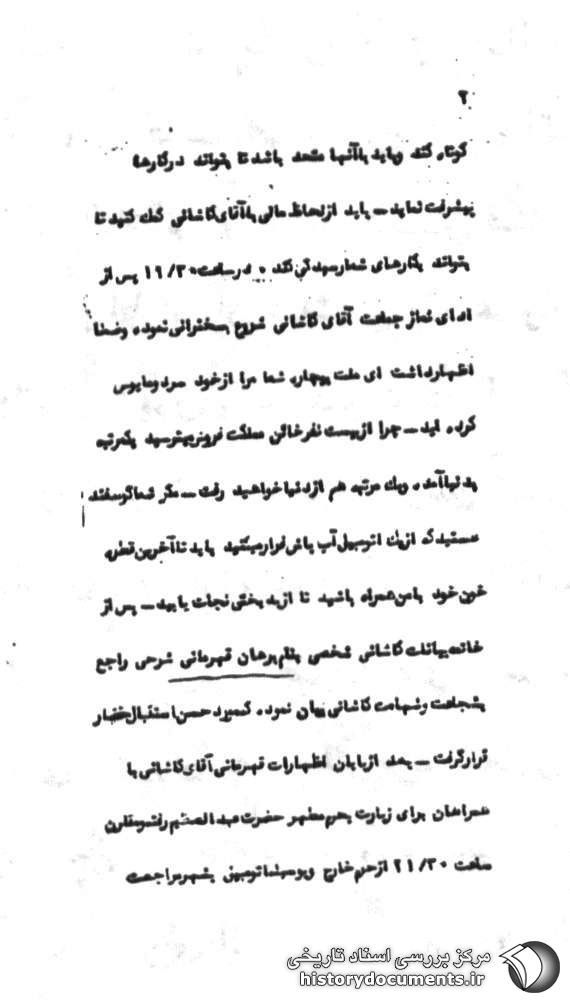 ۲
کوتاه کند وباید باآنها متحد باشد تا بتواند درکارها
پیشرفت نماید ــ باید ازلحاظ مالی باآقای کاشانی کمک کنید تا
بتواند بکارهای شمارسیدگی کند ۰ درساعت ۱۹/۳۰ پس از
ادای نماز جماعت آقای کاشانی شروع بسخنرانی نموده وضمنا
اظهارداشت ای ملت بیچاره شما مرا ازخود سرد ومایوس
کرده اید ــ چرا ازبیست نفرخائن مملکت فروش میترسید یکمرتبه
بدنیاآمده ویک مرتبه هم ازدنیا خواهید رفت ــ مگر شماگوسفند
هستیدکه ازیک اتومبیل آب پاش فرارمیکنید باید تاآخرین قطره
خون خود بامن همراه باشید تا ازبدبختی نجات یابید ــ پس از
خاتمه بیانات کاشانی شخصی بنام برهان قهرمانی شرحی راجع
بشجاعت وشهامت کاشانی بیان نموده که مورد حسن استقبال حضار
قرارگرفت ــ بعد ازپایان اظهارات قهرمانی آقای کاشانی با
همراهان برای زیارت بحرم مطهر حضرت عبدالعظیم رفته ومقارن
ساعت ۲۱/۳۰ ازحرم خارج وبوسیله اتومبیل بشهرمراجعت
مرکز بررسی اسناد تاریخی
historydocuments.ir